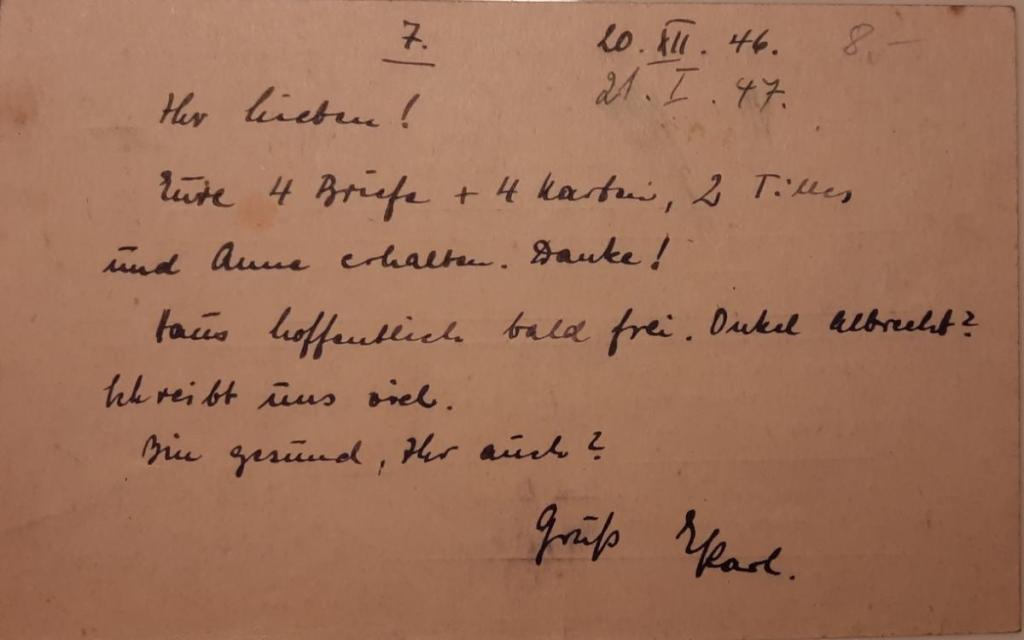 7. 20. XII. 46. 8.-
21. I. 47.
Ihr lieben!
Eure 4 Briefe + 4 Karten, 2
und Anne erhalten. Danke!
Haus hoffentlich bald frei. Onkel Albrecht?
Schreibt uns viel.
Bin gesund, Ihr auch?
Gruß